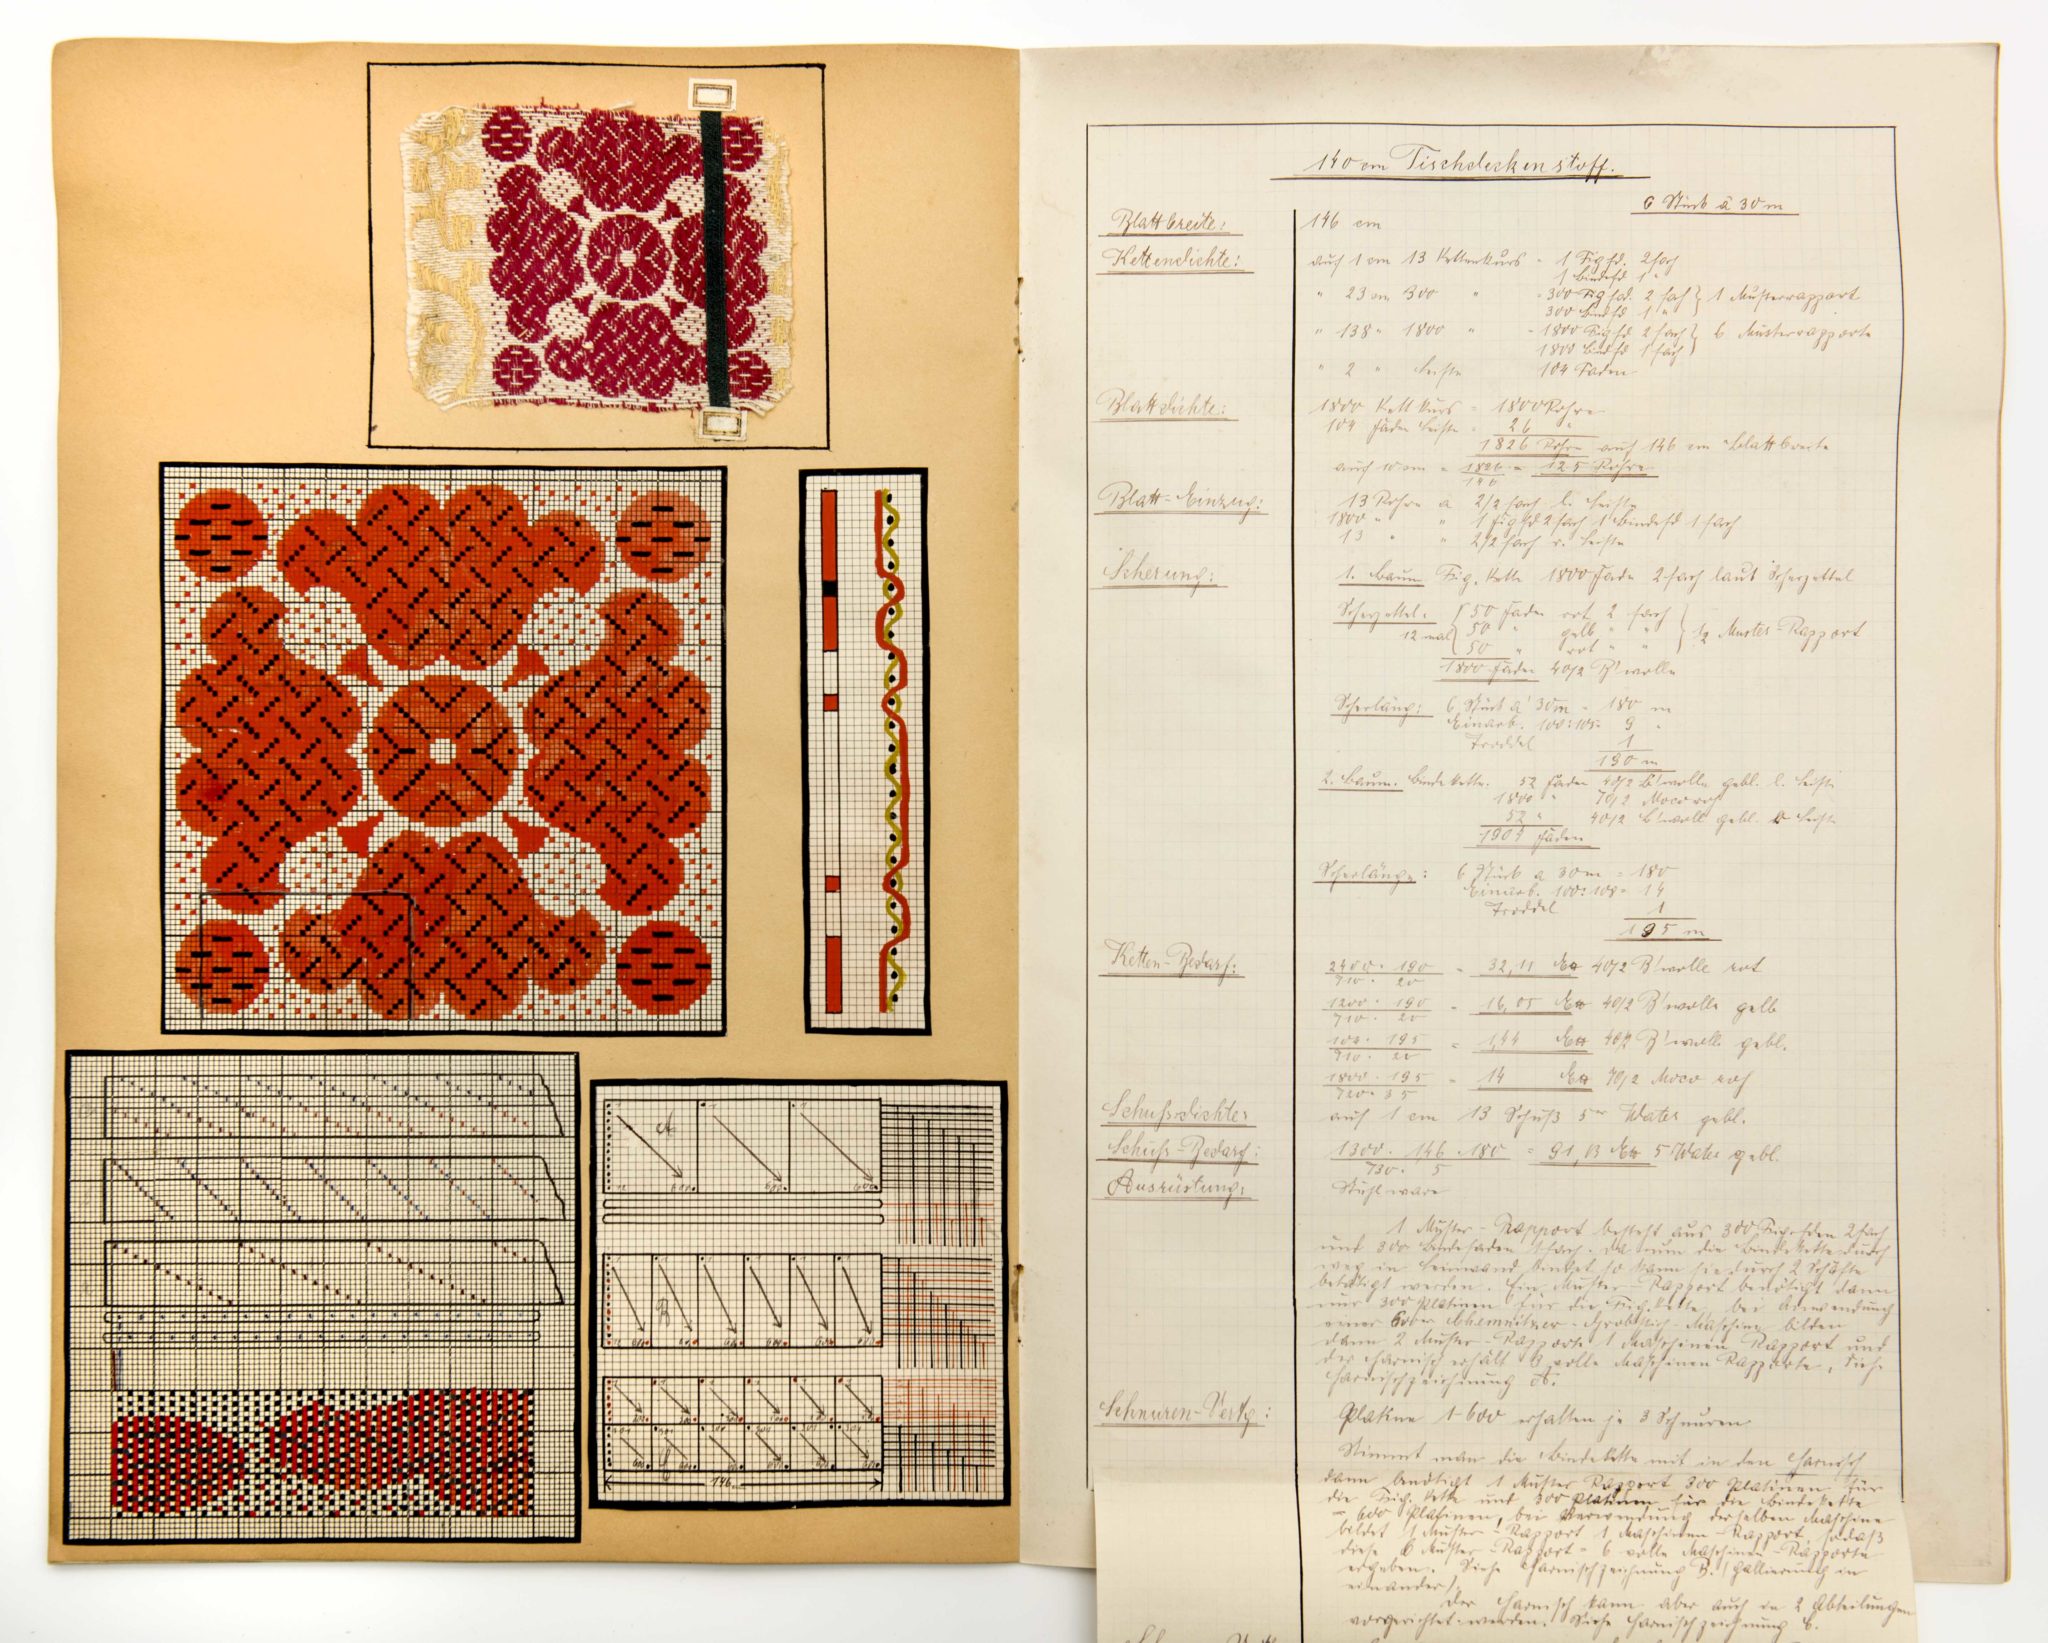 140 cm Tischdeckenstoff.
6 Stück à 30 m
Blattbreite: 146 cm
Kettendichte: auf 1 cm 13 Kettkurs = 1 Figfd. 2fach
1 Bindefd 1 "
" 23 cm 300 " = 300 Figfd. 2 fach } 1 Musterrapport
300 Bindfd 1 "
" 138 " 1800 " = 1800 Figfd 2 fach } 6 Musterrapporte
1800 Bindfd 1 fach
" 2 " Leiste 104 Faden
Blattdichte: 1800 Kettkurs = 1800 Rohre
104 Fäden Leiste = 26 "
1826 Rohre auf 146 cm Blattbreite
auf 10 cm = 1826 / 146 = 125 Rohre
Blatt-Einzug: 13 Rohre a 2/2 fach l. Leiste
1800 " " 1 Figfd 2 fach 1 Bindefd 1 fach
13 " " 2/2 fach r. Leiste
Scherung: 1. Baum Fig. Kette 1800 Fäde 2 fach laut Scherzettel
Scherzettel: { 50 Faden rot 2 fach }
12 mal { 50 " gelb " " } 1/2 Muster-Rapport
{ 50 " rot " " }
1800 Fäden 40/2 B'wolle
Scherläng: 6 Stück à 30m = 180 m
Einarb. 100:105 = 9 "
Troddel 1
190 m
2. Baum. Bindekette. 52 Fäden 40/2 B'wolle gebl. l. Leiste
1800 " 70/2 Moco roh
52 " 40/2 B'woll gebl. r Leiste
1904 Fäden
Scherlänge: 6 Stück a 30 m = 180
Einarb. 100:108 = 14
Troddel 1
195 m
Ketten-Bedarf: 2400 · 190 / 710 · 20 = 32,11 40/2 B'wolle rot
1200 · 190 / 710 · 20 = 16,05 40/2 B'wolle gelb
104 · 195 / 710 · 20 = 1,44 40/2 B'wolle gebl.
1800 · 195 / 720 · 35 = 14 70/2 Moco roh
Schußdichte: auf 1 cm 13 Schuß 5er Water gebl.
Schuß-Bedarf: 1300 · 146 · 180 / 730 · 5 = 91,13 5 Water gebl.
Ausrüstung: Stuhlware
1 Muster-Rapport besteht aus 300 Figfden 2fach
und 300 Bindefaden 1fach. Da nun die Bindekette durch
weg in Leinwand bindet so kann sie durch 2 Schäfte
betätigt werden. Ein Muster-Rapport benötigt dann
nur 300 Platinen für die Fig.kette, bei Anwendung
einer 600er Chemnitzer-Grobstich-Maschine bilden
dann 2 Muster-Rapporte 1 Maschinen Rapport und
der Harnisch erhält 3 volle Maschinen Rapporte, siehe
Harnischzeichnung A.
Schnuren-Vertg: Platine 1-600 erhalten je 3 Schnuren
Nimmt man die Bindekette mit in den Harnisch
dann benötigt 1 Muster Rapport 300 Platinen für
die Fig. Kette und 300 Platinen für die Bindekette
= 600 Platinen, bei Verwendung derselben Maschine
bildet 1 Muster-Rapport 1 Maschinen-Rapport, sodaß
diese 6 Muster-Rapport = 6 volle Maschinen-Rapporte
ergeben. Siehe Harnischzeichnung B. (Gallierung in
einander).
Der Harnisch kann aber auch in 2 Abteilungen
vorgerichtet werden. Siehe Harnischzeichnung C.
A
B
146